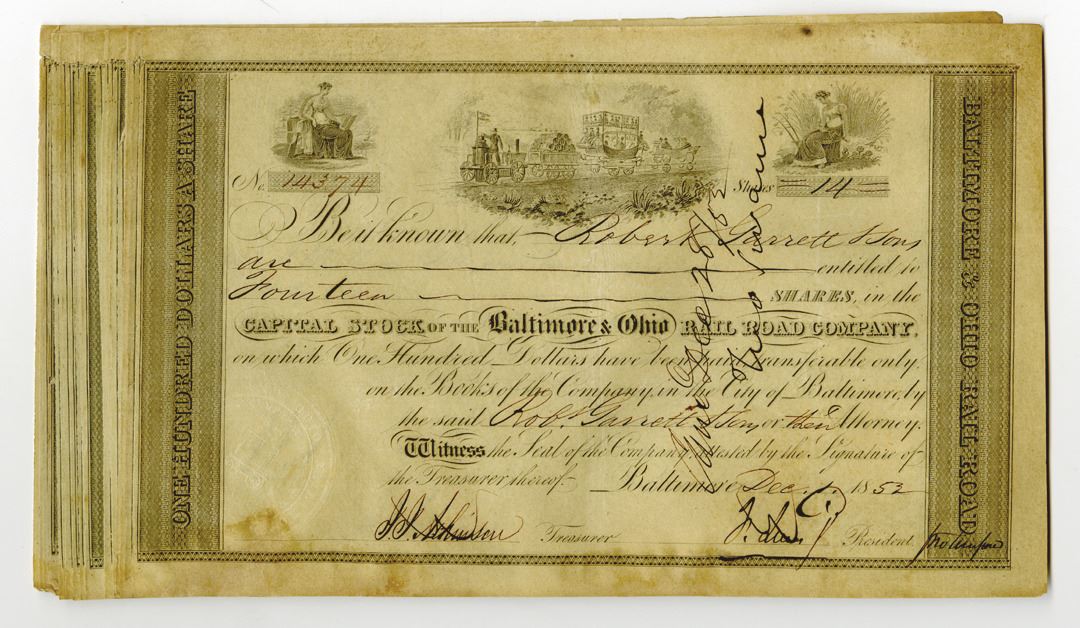 ONE HUNDRED DOLLARS A SHARE
No. 14374
Shares 14
Be it known that, Robert Garrett & Sons
are entitled to
Fourteen SHARES, in the
CAPITAL STOCK OF THE Baltimore & Ohio RAIL ROAD COMPANY,
on which One Hundred Dollars have been paid transferable only
on the Books of the Company, in the City of Baltimore by
the said Robt. Garrett & Sons, or their Attorney.
Witness the Seal of the Company, attested by the Signature of
the Treasurer thereof Baltimore Dec. 1852
Treasurer
President
BALTIMORE & OHIO RAIL ROAD